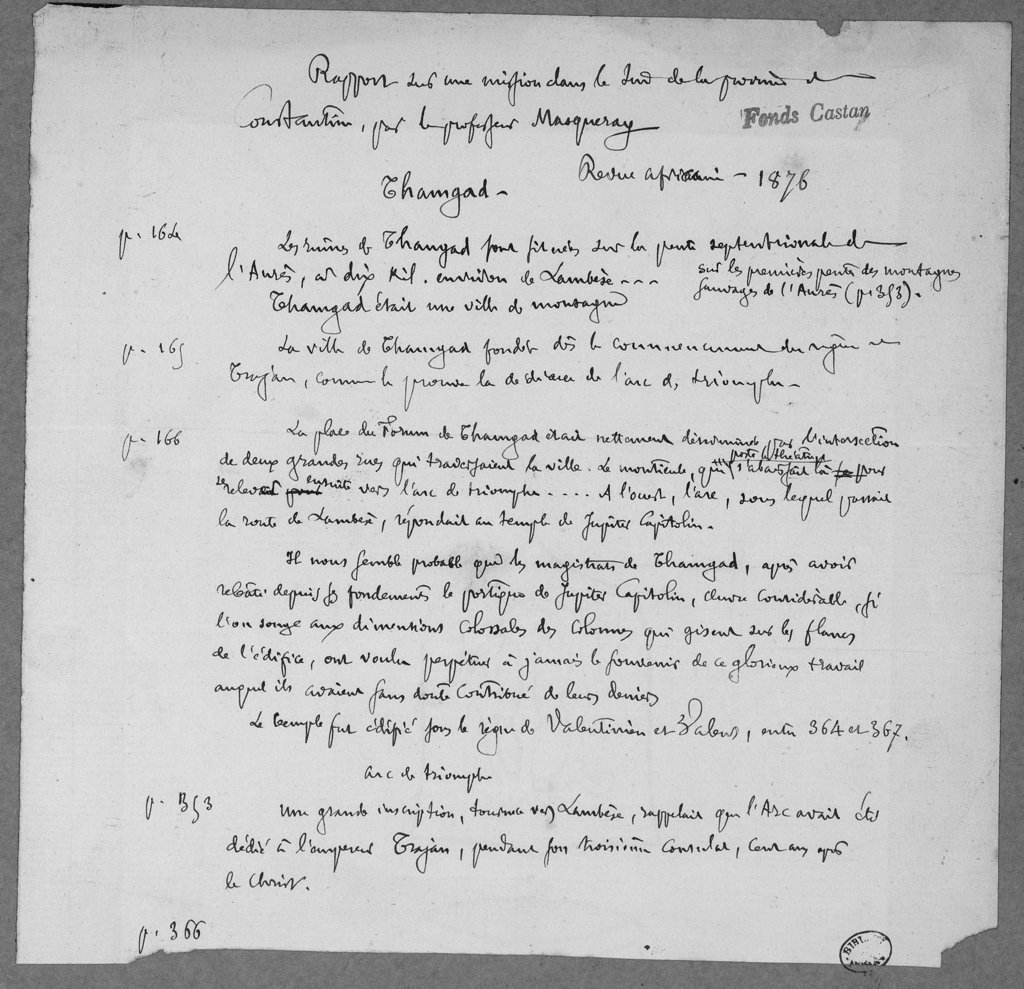 Rapport sur une mission dans le Sud de la province de
Constantine, par le professeur Masqueray
Fonds Castan
Revue africaine - 1876
Thamgad -
p. 164 Les ruines de Thamgad sont situées sur la pente septentrionale de
l'Aurès, à dix Kil. environ de Lambèse - - - sur les premières pentes des montagnes
sauvages de l'Aurès (p. 353).
Thamgad était une ville de montagne
p. 165 La ville de Thamgad fondée dès le commencement du règne de
Trajan, comme le prouve la dédicace de l'arc de triomphe -
p. 166 La place du Forum de Thamgad était nettement déterminée par l'intersection
de deux grandes rues qui traversaient la ville. Le monticule, qui porte le théâtre, s'abaissait là pour
se relever ensuite vers l'arc de triomphe - .... A l'ouest, l'arc, sous lequel passait
la route de Lambèse, répondait au temple de Jupiter Capitolin.
Il nous semble probable que les magistrats de Thamgad, après avoir
rebâti depuis ses fondements le portique de Jupiter Capitolin, œuvre considérable, si
l'on songe aux dimentions colossales des colonnes qui gisent sur les flancs
de l'édifice, ont voulu perpétuer à jamais le souvenir de ce glorieux travail
auquel ils avaient sans doute contribué de leurs deniers
Le temple fut édifié sous le règne de Valentinien et Valens, entre 364 et 367.
arc de triomphe
p. 353 Une grande inscription, tournée vers Lambèse, rappelait que l'Arc avait été
dédié à l'empereur Trajan, pendant son troisième consulat, cent ans après
le Christ.
p. 366